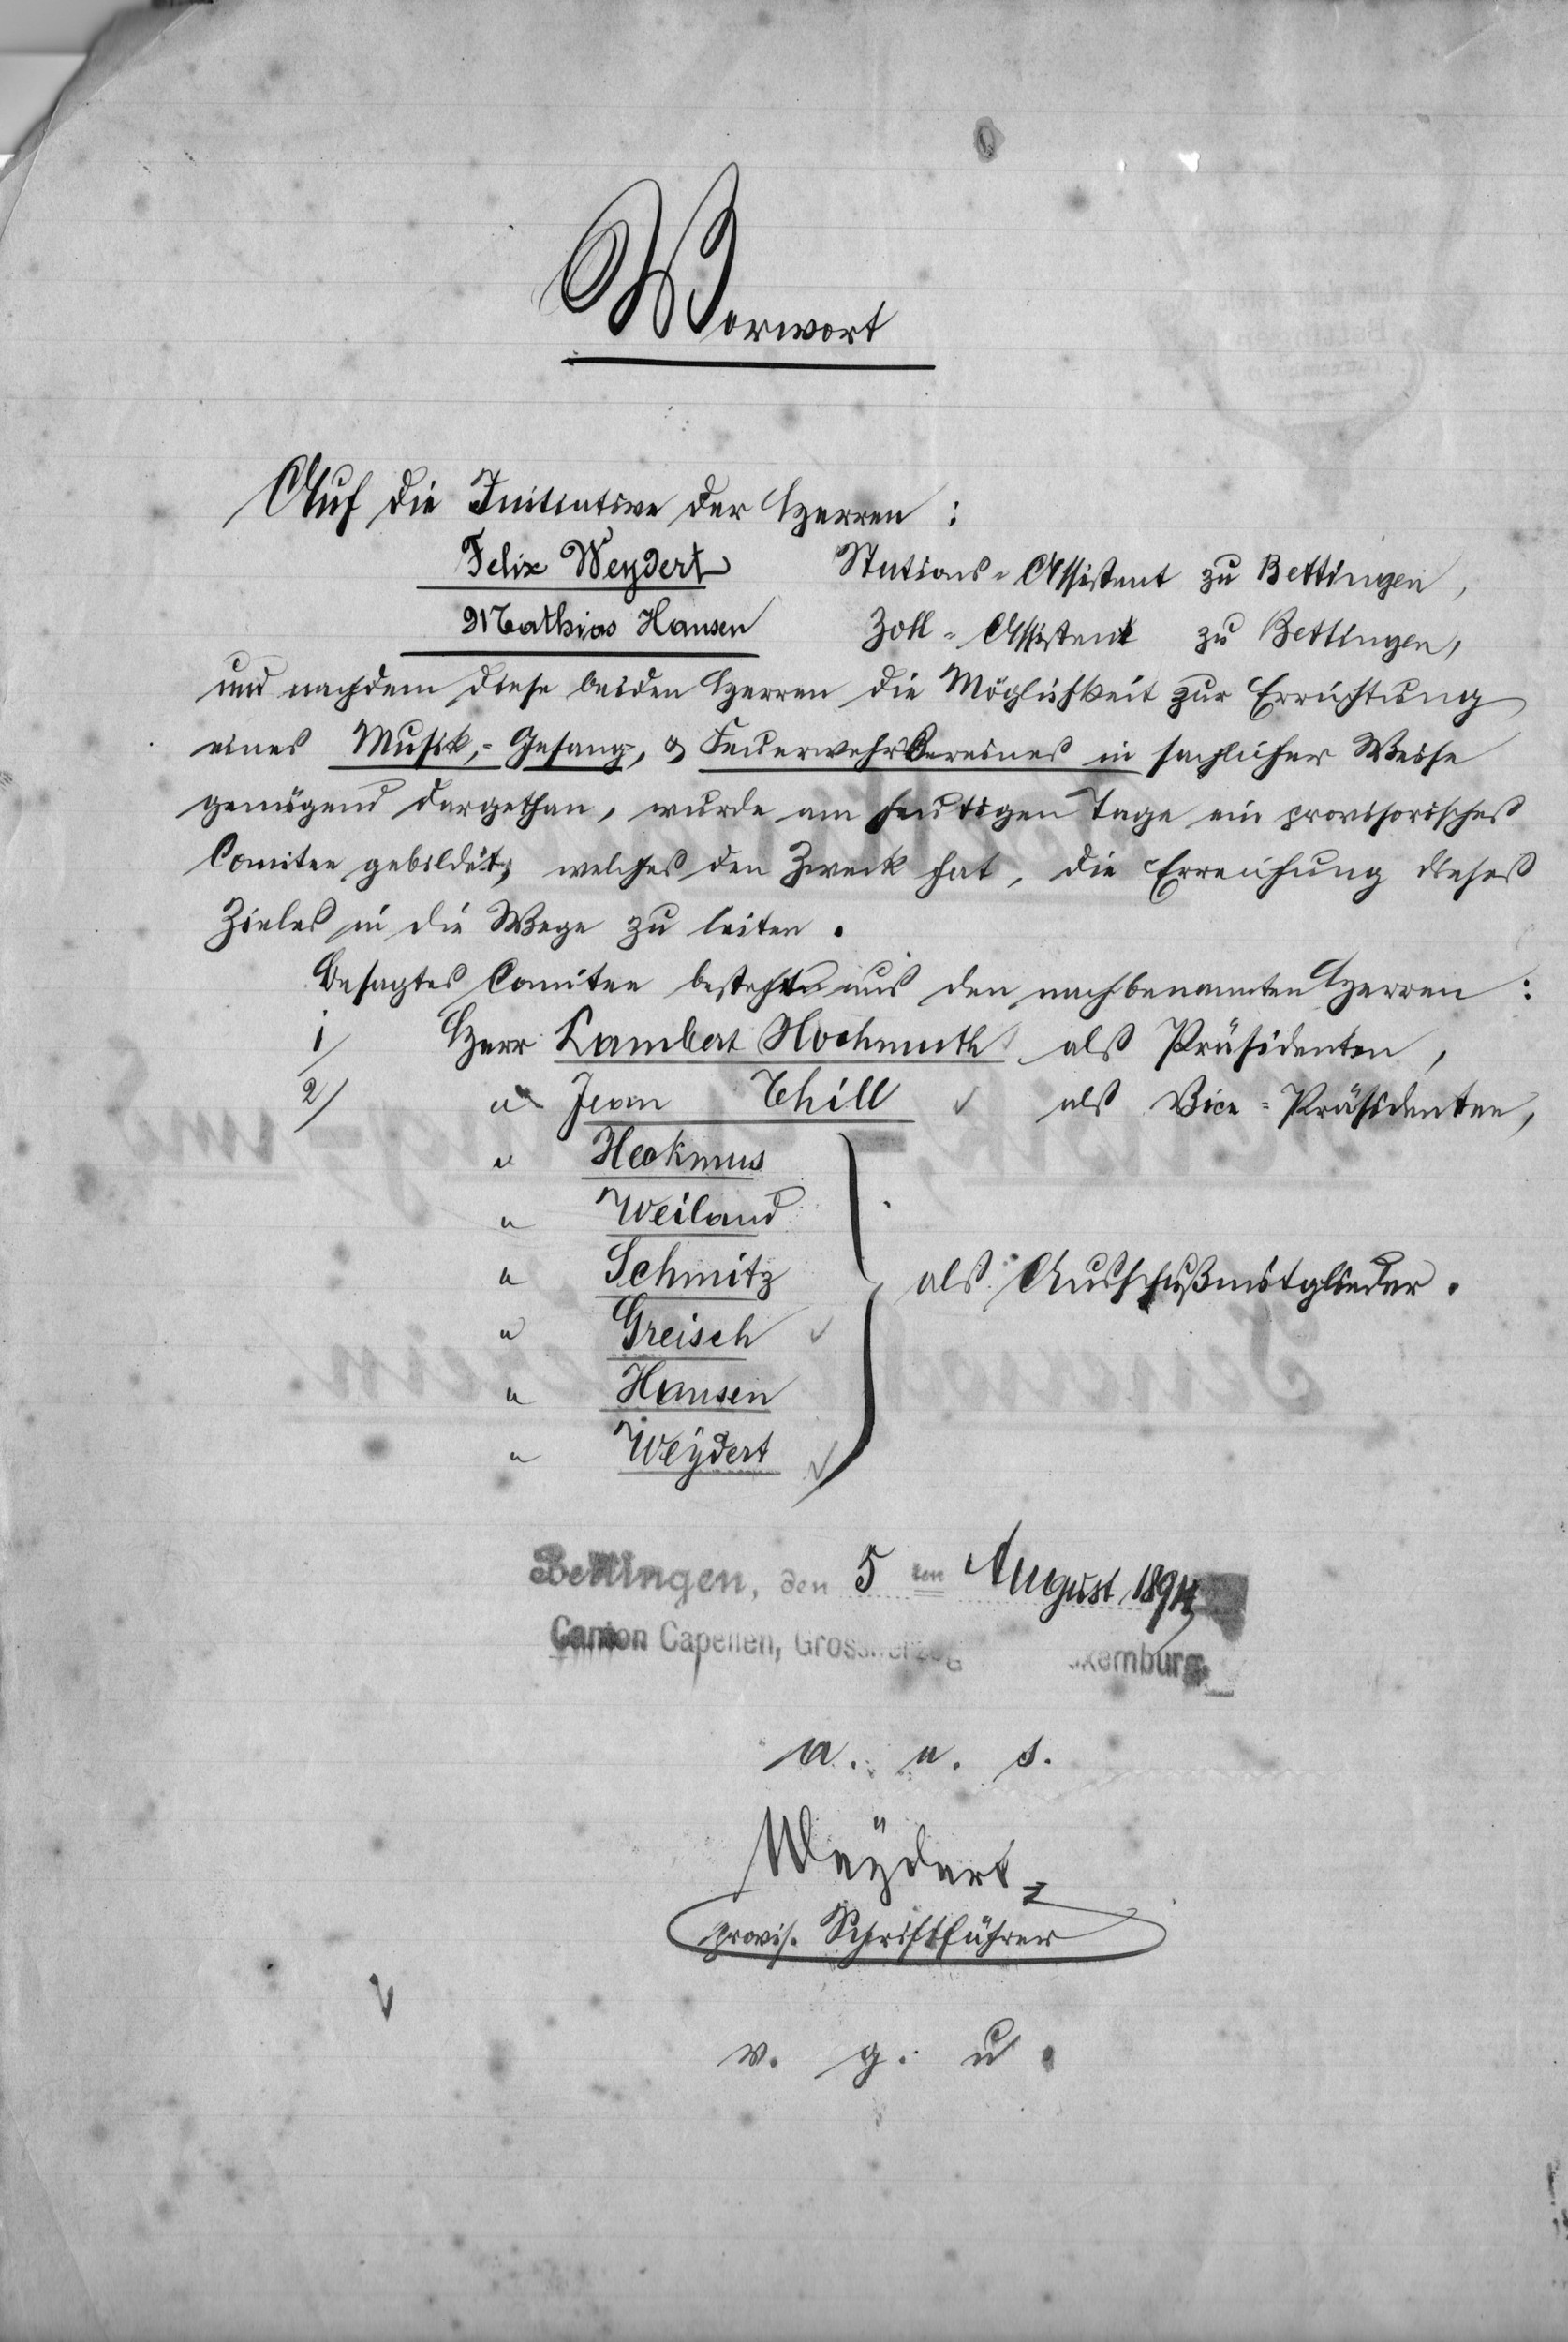 Vorwort
Auf die Initiative der Herren :
Felix Weydert Stations-Assistent zu Bettingen,
Mathias Hansen Zoll-Assistent zu Bettingen,
und nachdem diese beiden Herren die Möglichkeit zur Errichtung
eines Musik,- Gesang, & Feuerwehrvereines in sachlicher Weise
genügend dargethan, wurde am heutigen Tage ein provisorisches
Comitee gebildet, welches den Zweck hat, die Erreichung dieses
Zieles in die Wege zu leiten.
Besagtes Comitee besteht aus den nachbenannten Herren :
1/ Herr Lambert Hochmuth als Präsidenten,
2/ " Jean Thill als Vice-Präsidenten,
" Heckmus
" Weiland
" Schmitz
als Ausschußmitglieder.
" Greisch
" Hansen
" Weÿdert
Bettingen, den 5 ten August 1894
Canton Capellen, Grossherzog Luxemburg.
a. u. s.
Weÿdert
provis. Schriftführer
v. g. u.